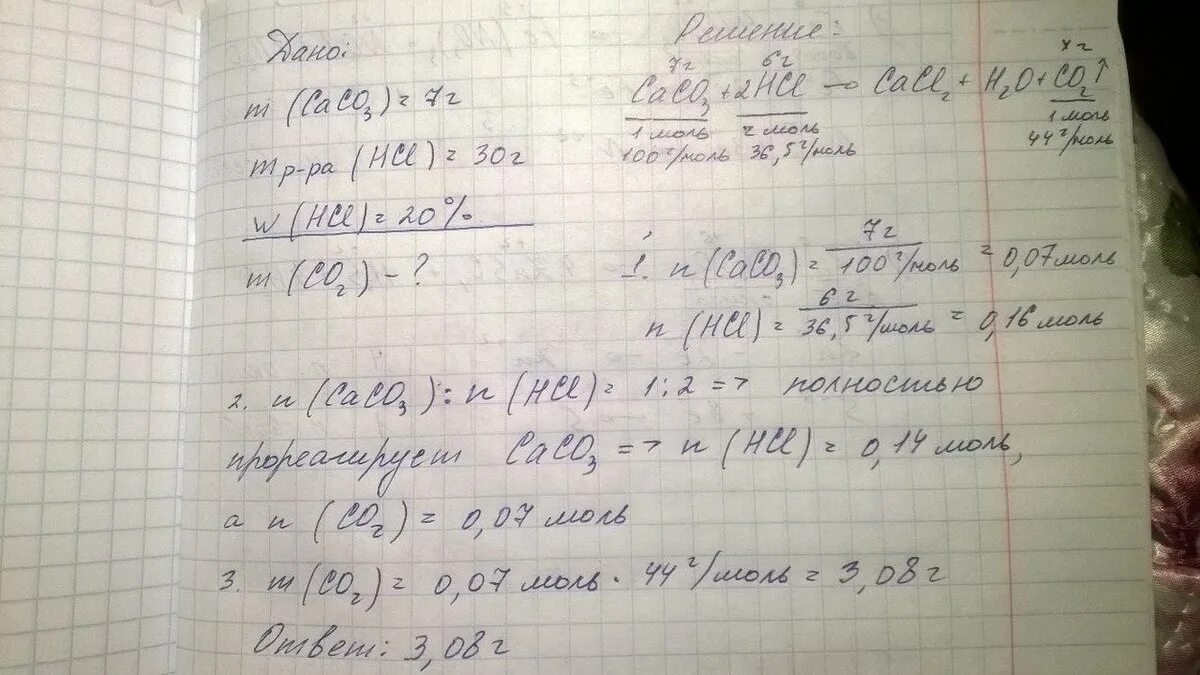 Дано:
m (CaCO₃) = 7г
m р-ра (HCl) = 30г
w (HCl) = 20%
m (CO₂) - ?
Решение:
7г 6г xг
CaCO₃ + 2HCl → CaCl₂ + H₂O + CO₂↑
1 моль 2 моль 1 моль
100 г/моль 36,5 г/моль 44 г/моль
1. n (CaCO₃) = 7г / 100 г/моль = 0,07 моль
n (HCl) = 6 г / 36,5 г/моль = 0,16 моль
2. n (CaCO₃) : n (HCl) = 1 : 2 => полностью
прореагирует CaCO₃ => n (HCl) = 0,14 моль,
а n (CO₂) = 0,07 моль
3. m (CO₂) = 0,07 моль · 44 г/моль = 3,08 г
Ответ: 3,08 г